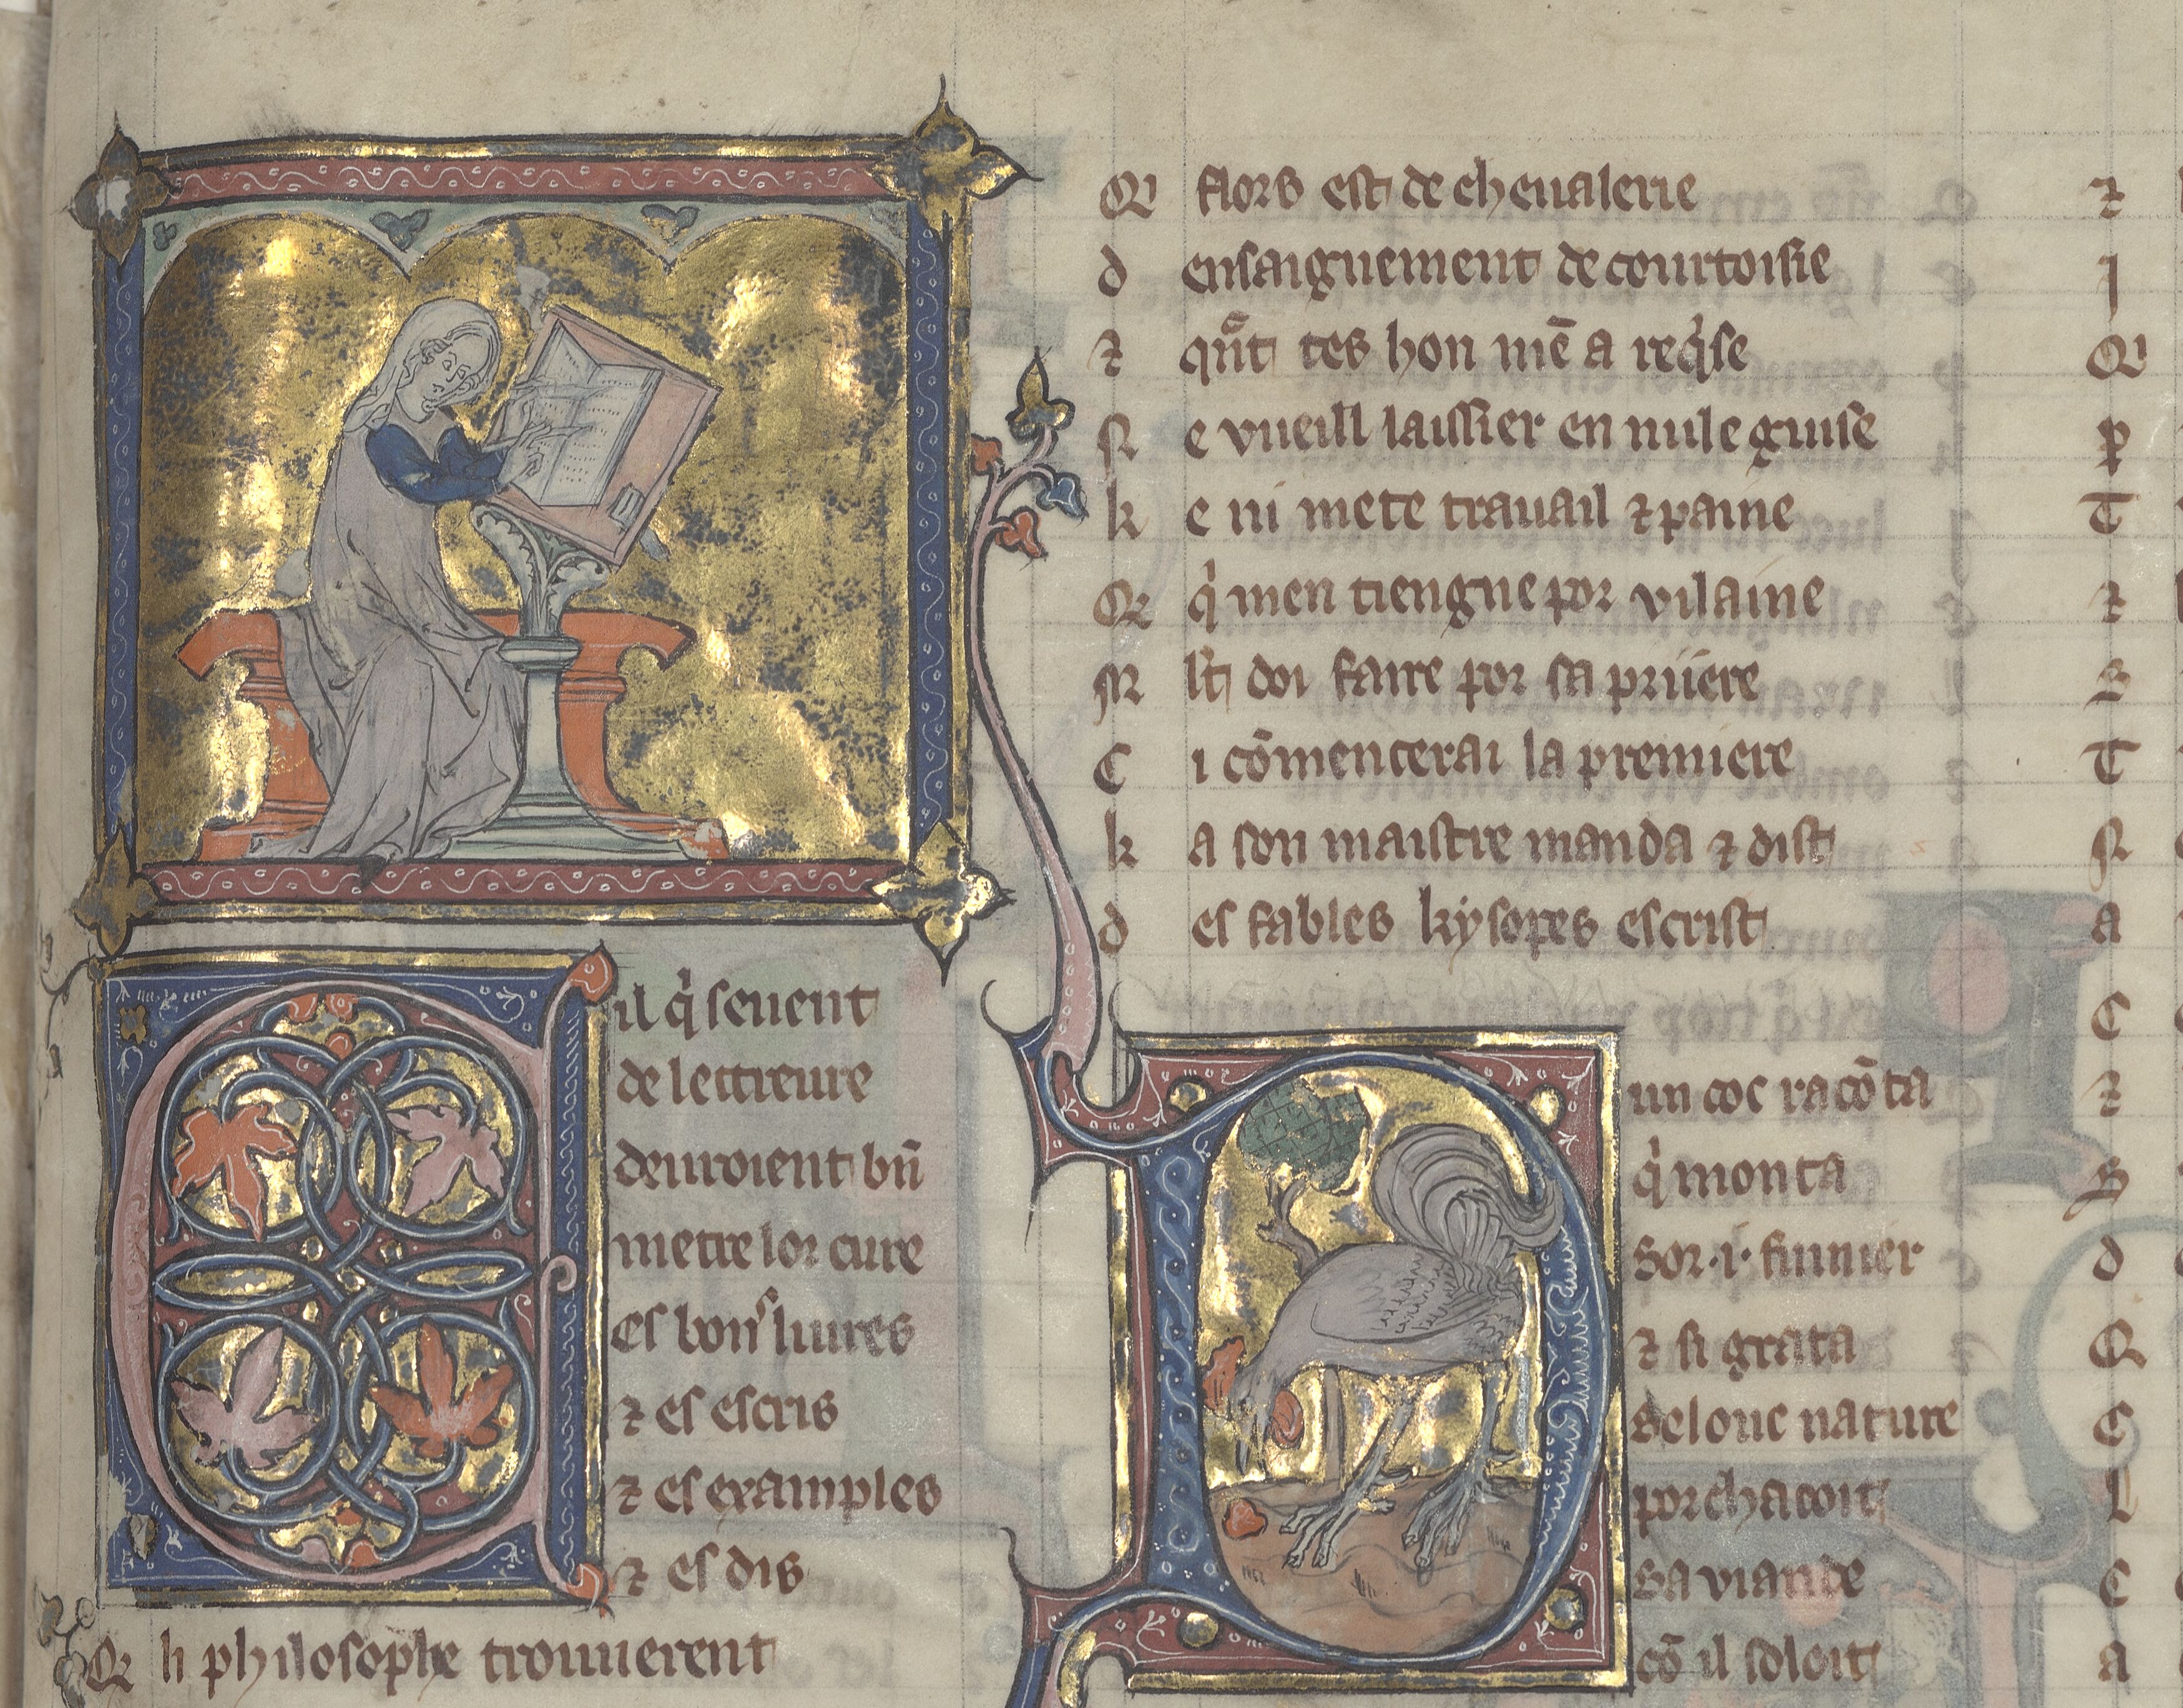 Cil q̇ seuent
de lettreure
deuroient bn̄
metre lor cure
es bonˢ liures
⁊ es escris
⁊ es examples
⁊ es dis
Q li philosophe trouuerent
Q flors est de cheualerie
d ensaignement de courtoisie
⁊ qn̄t tes hon mē a req̇se
N e vueill laissier en nule guise
k e ni mete trauail ⁊ paine
Q q̇ men tiengne por vilaine
M lt doi faire por sa priiere
C i cōmencerai la premiere
k a son maistre manda ⁊ dist
d es fables kysopes escrist
Dun coc racōta
q̇ monta
Sor .i. fumier
⁊ si grata
Selonc nature
porchacoit
Sa viande
cō il soloit
⁊
J
Q
p
T
⁊
S
T
N
a
C
⁊
S
d
Q
C
L
C
a